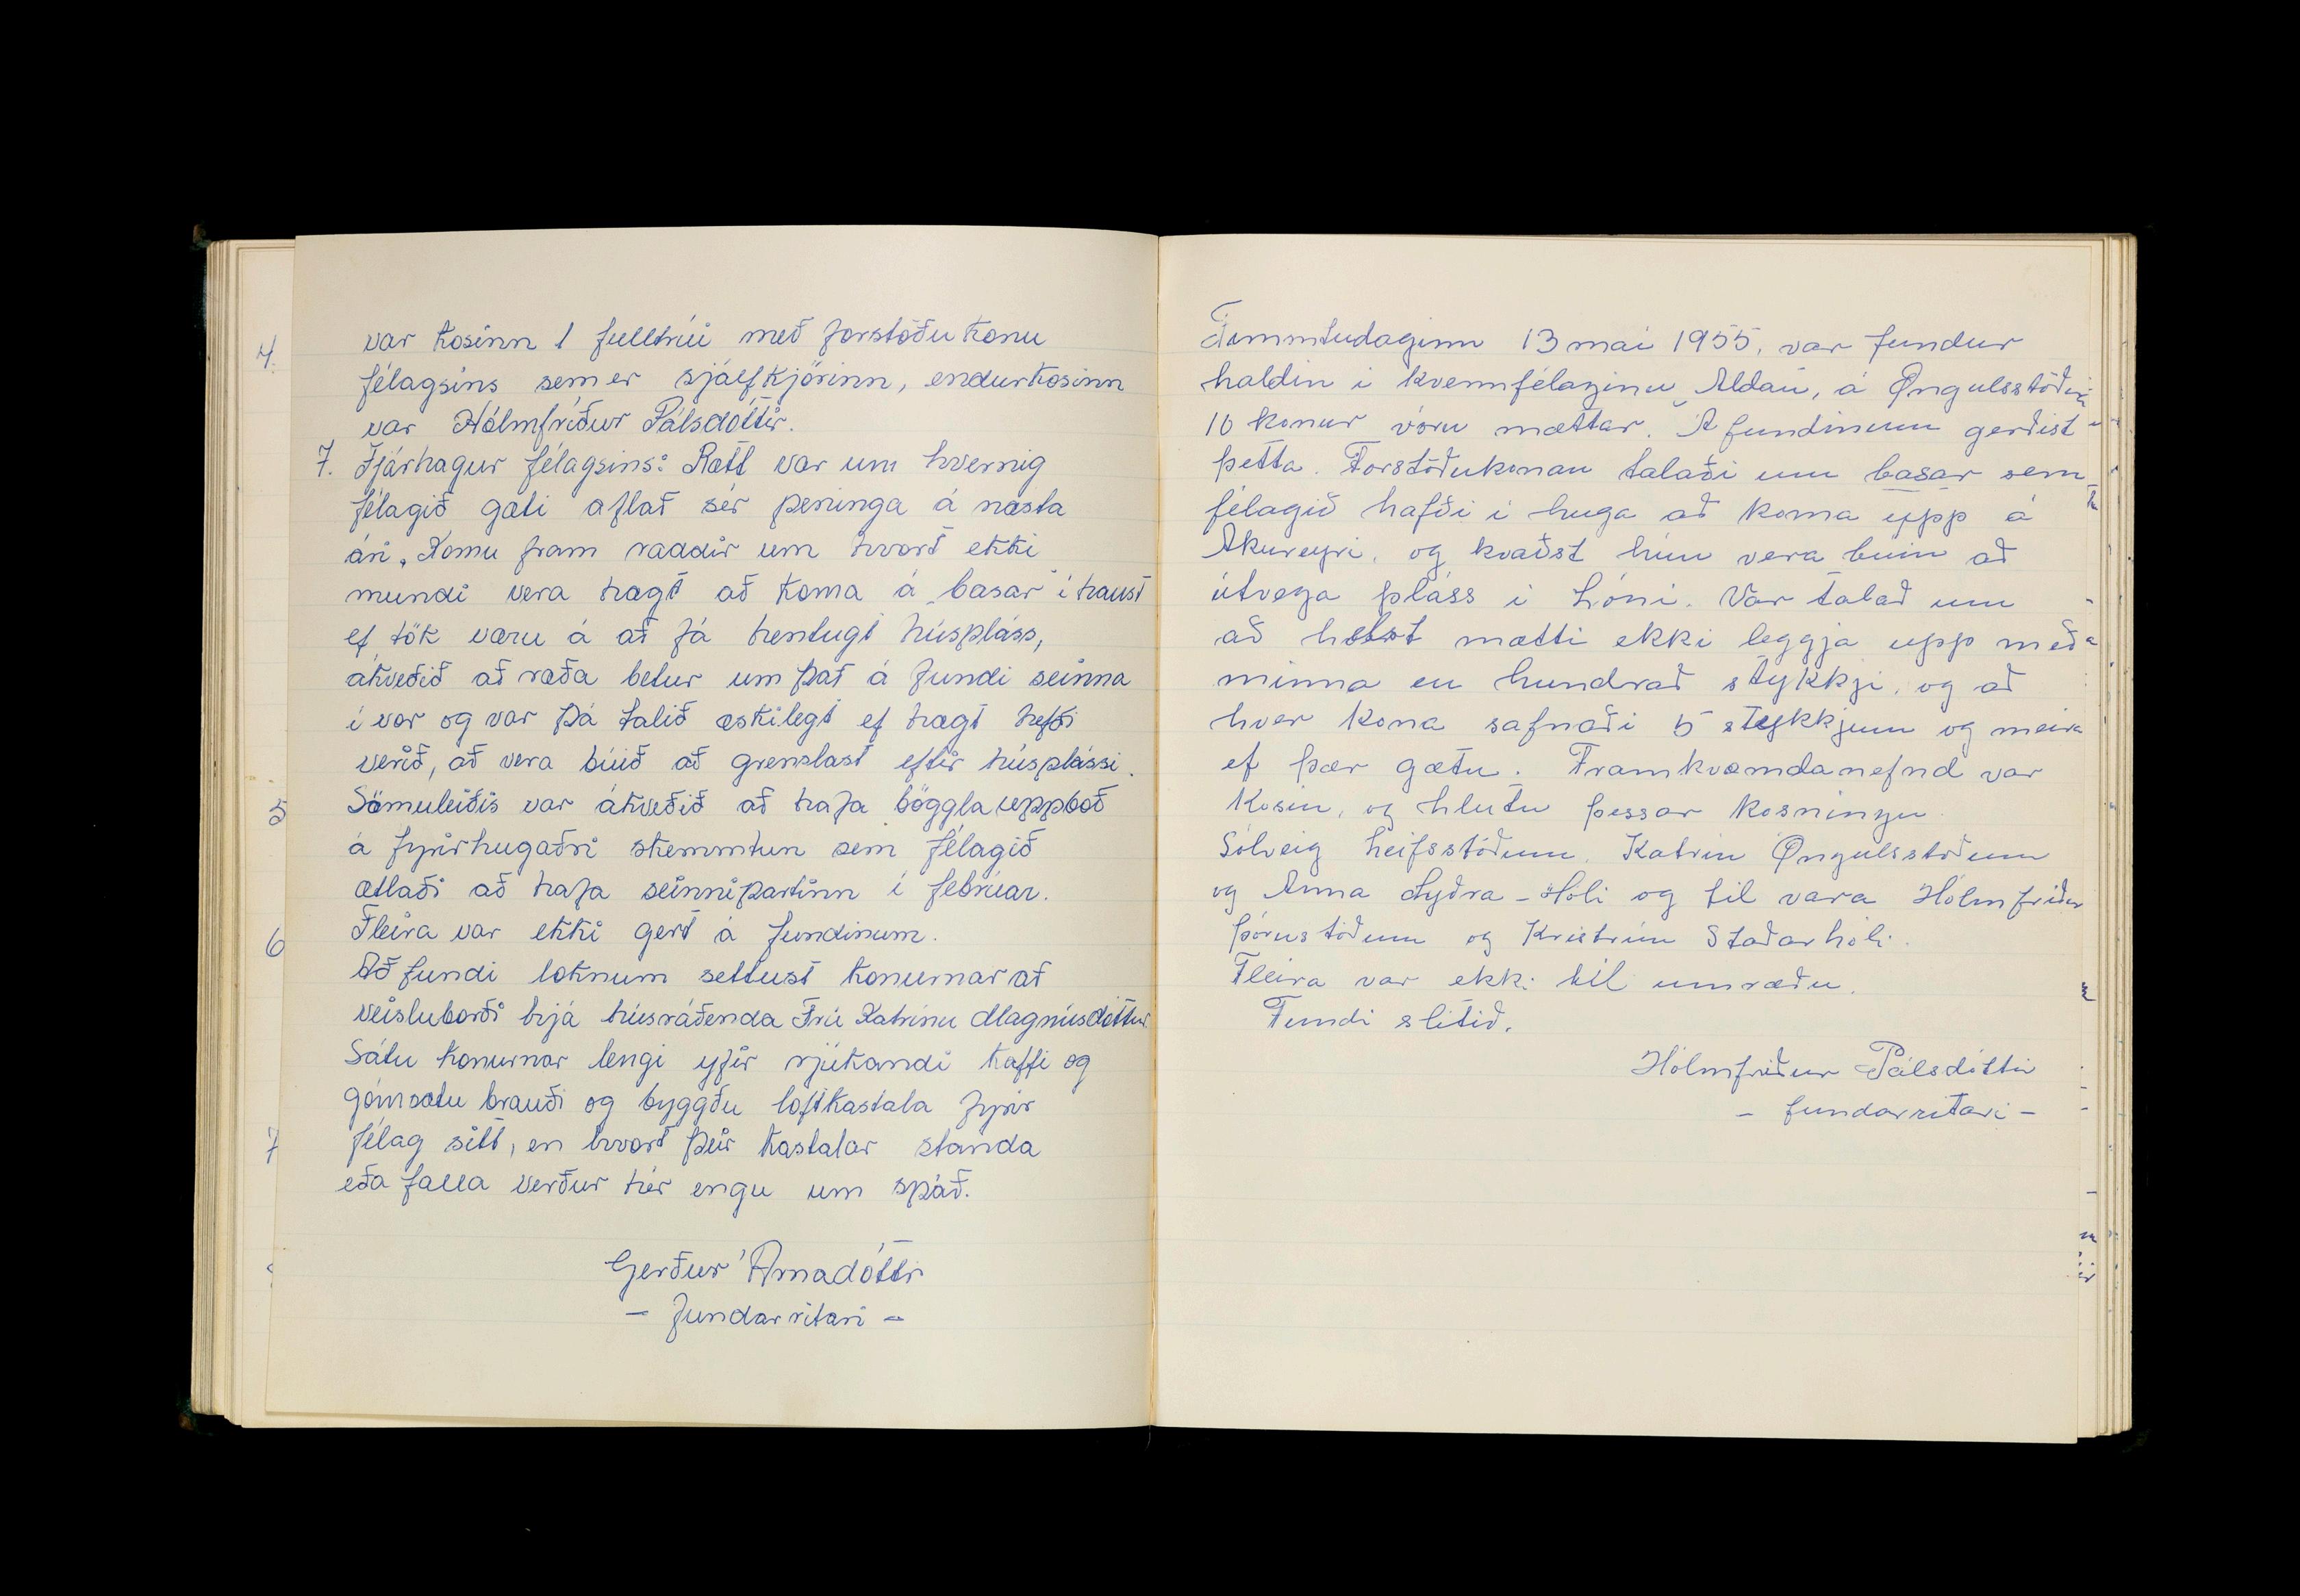 var kosinn 1 fulltrúi með forstöðukonu
félagsins sem er sjálfkjörinn, endurkosinn
var Hólmfríður Pálsdóttir.
7. Fjárhagur félagsins: Rætt var um hvernig
félagið gæti aflað sér peninga á næsta
ári, Komu fram raddir um hvort ekki
mundi vera hægt að koma á „basar" í haust
ef tök væru á að fá hentugt húspláss,
ákveðið að ræða betur um það á fundi seinna
í vor og var þá talið æskilegt ef hægt hefði
verið, að vera búið að grenslast eftir húsplássi.
Sömuleiðis var ákveðið að hafa bögglauppboð
á fyrirhugaðri skemmtun sem félagið
ætlaði að hafa seinnipartinn í febrúar.
Fleira var ekki gert á fundinum.
Að fundi loknum settust konurnar að
veisluborði hjá húsráðenda Frú Katrínu Magnúsdóttur
Sátu konurnar lengi yfir rjúkandi kaffi og
gómsætu brauði og byggðu loftkastala fyrir
félag sitt, en hvort þeir kastalar standa
eða falla verður hér engu um spáð.
Gerður Árnadóttir
- fundarritari -
4.
5
6
7
Fimmtudaginn 13 mai 1955, var fundur
haldin i kvennfélaginu „Aldan", á Öngulsstöðum
10 konur vóru mættar. Á fundinum gerðist
þetta. Forstöðukonan talaði um basar sem
félagið hafði i huga að koma upp á
Akureyri, og kvaðst hún vera búin að
útvega pláss i Lóni. Var talað um
að helst mætti ekki leggja upp með
minna en hundrað stykkji, og að
hver kona safnaði 5 stykkjum og meira
ef þær gætu. Framkvæmdanefnd var
kosin, og hlutu þessar kosningu.
Sólveig Leifsstöðum, Katrín Öngulsstöðum
og Anna Lyðra-Hóli og til vara Hólmfríður
Þórustöðum og Kristrún Staðarhóli.
Fleira var ekki til umræðu.
Fundi slitið.
Hólmfríður Pálsdóttir
- fundarritari -